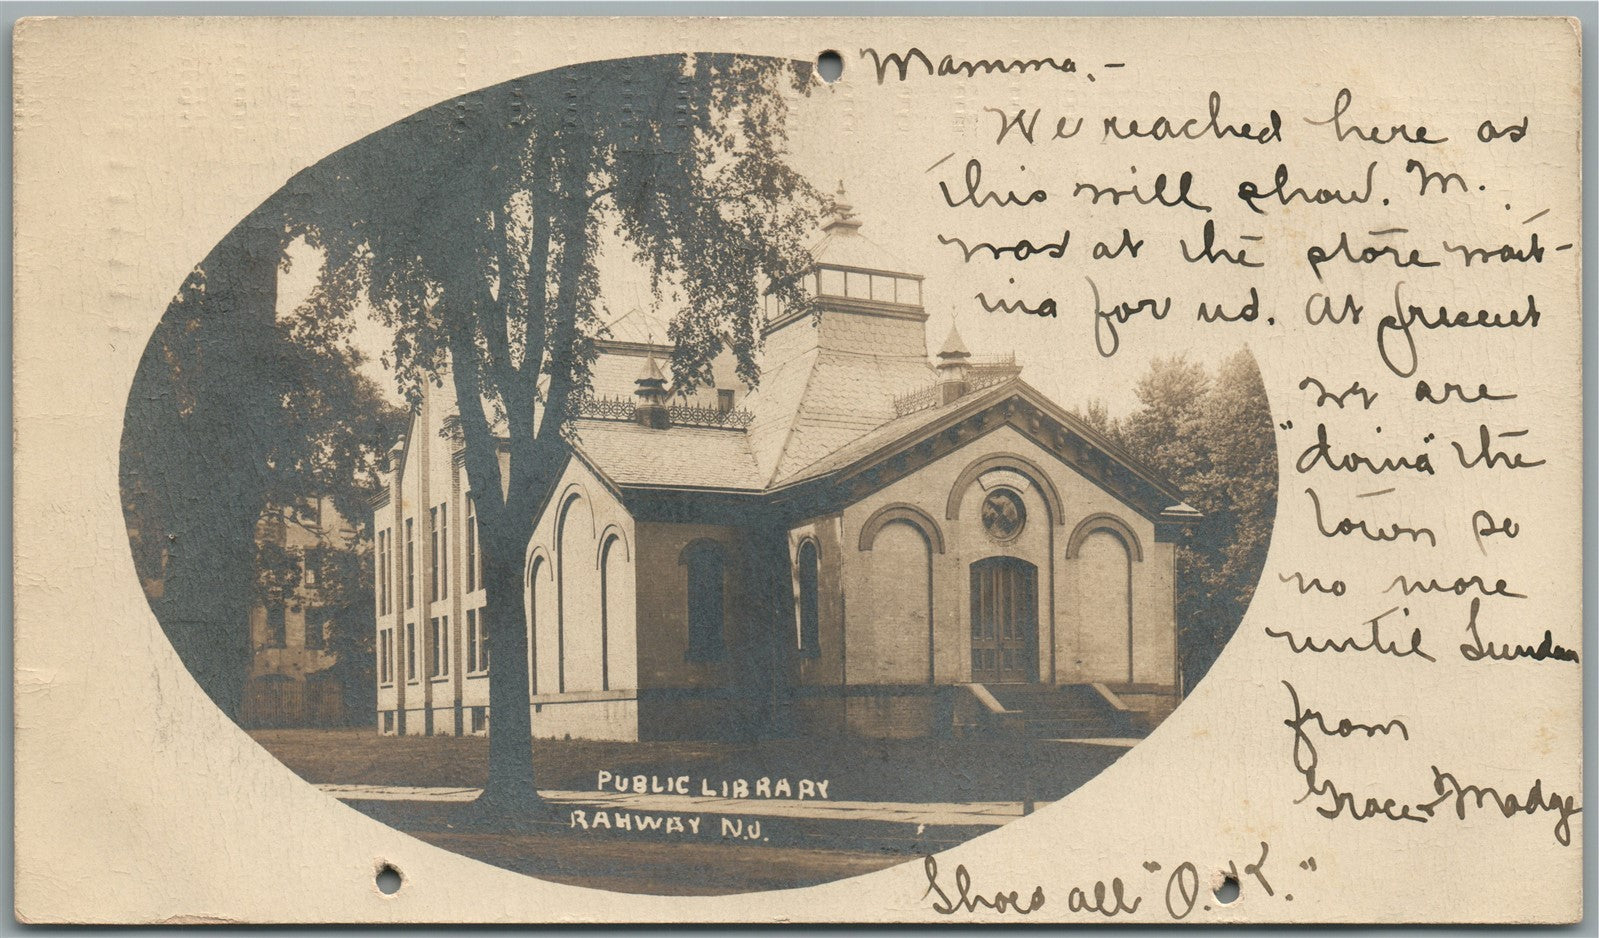 Mamma,-
We reached here as
this will show. M.
was at the store wait-
ing for us. At present
we are
"doing" the
town so
no more
until Sunday
from
Grace & Madge
Shoes all "O.K."
PUBLIC LIBRARY
RAHWAY N.J.